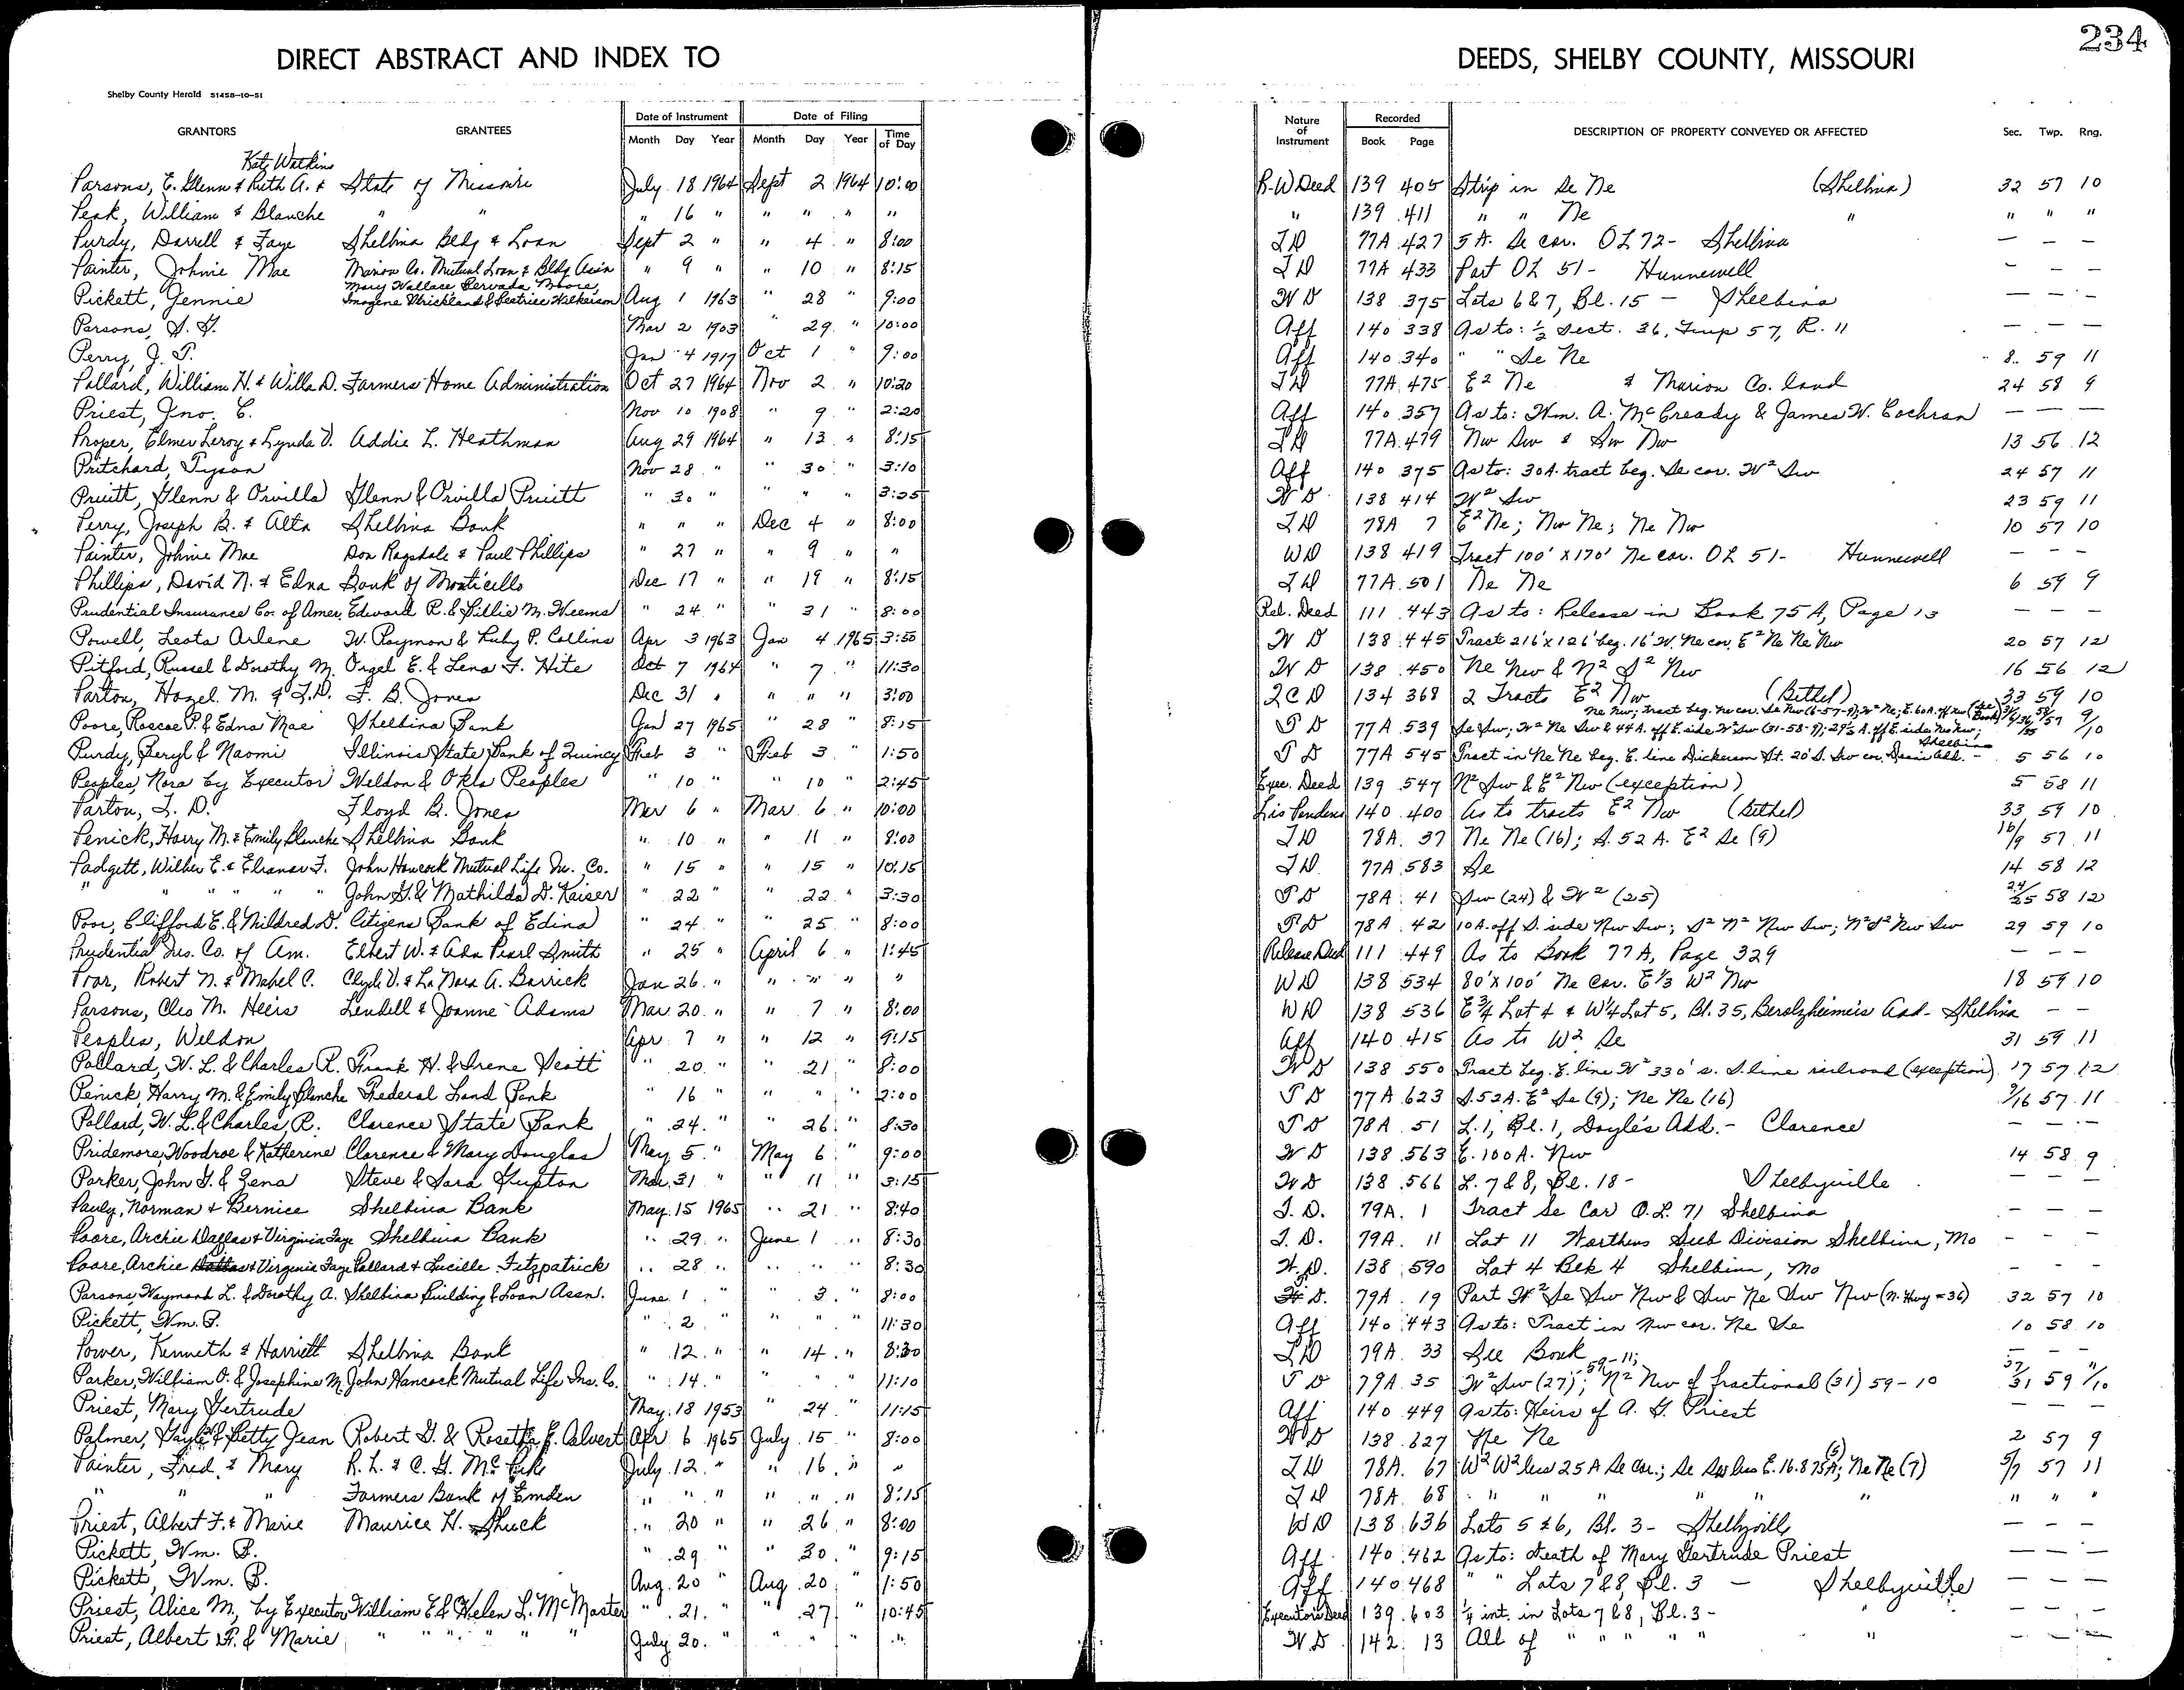 234
DIRECT ABSTRACT AND INDEX TO DEEDS, SHELBY COUNTY, MISSOURI
Shelby County Herald 51458-10-51
GRANTORS GRANTEES Date of Instrument Date of Filing Nature of Instrument Recorded DESCRIPTION OF PROPERTY CONVEYED OR AFFECTED Sec. Twp. Rng.
Month Day Year Month Day Year Time of Day Book Page
Katy Watkins
Parsons, E. Glenn & Ruth A. & State of Missouri July 18 1964 Sept 2 1964 10:00 R-W Deed 139 405 Strip in Se Ne (Shelbina) 32 57 10
Peak, William & Blanche " " " 16 " " " " " " 139 411 " " Ne " " " "
Purdy, Darrell & Faye Shelbina Bldg & Loan Sept 2 " " 4 " 8:00 T D 77A 427 5 A. Se cor. OL 72- Shelbina — — —
Painter, Johnie Mae Marion Co. Mutual Loan & Bldg Ass'n " 9 " " 10 " 8:15 T D 77A 433 Part OL 51- Hunnewell — — —
Mary Wallace, Servada Moore,
Pickett, Jennie Imogene Strickland & Beatrice Wilkerson Aug 1 1963 " 28 " 9:00 W D 138 375 Lots 6 & 7, Bl. 15 - Shelbina — — —
Parsons, S. G. Mar 2 1903 " 29 " 10:00 Aff 140 338 As to: ½ Sect. 36, Twp 57, R. 11 — — —
Perry, J. T. Jan 4 1917 Oct 1 " 9:00 Aff 140 340 " " Se Ne 8 59 11
Pollard, William H. & Willa D. Farmers Home Administration Oct 27 1964 Nov 2 " 10:20 T D 77A 475 E² Ne & Marion Co. land 24 58 9
Priest, Jno. C. Nov 10 1908 " 9 " 2:20 Aff 140 357 As to: Wm. A. McCready & James W. Cochran — — —
Proper, Elmer Leroy & Lynda V. Addie L. Heathman Aug 29 1964 " 13 " 8:15 T D 77A 479 Nw Sw & Sw Nw 13 56 12
Pritchard, Tyson Nov 28 " " 30 " 3:10 Aff 140 375 As to: 30 A. tract beg. Se cor. W² Sw 24 57 11
Pruitt, Glenn & Orvilla Glenn & Orvilla Pruitt " 30 " " " " 3:25 W D 138 414 W² Sw 23 59 11
Perry, Joseph B. & Alta Shelbina Bank " " " Dec 4 " 8:00 T D 78A 7 E² Ne; Nw Ne; Ne Nw 10 57 10
Painter, Johnie Mae Don Ragsdale & Paul Phillips " 27 " " 9 " " WD 138 419 Tract 100' x 170' Ne cor. OL 51- Hunnewell — — —
Phillips, David N. & Edna Bank of Monticello Dec 17 " " 19 " 8:15 T D 77A 501 Ne Ne 6 59 9
Prudential Insurance Co. of Amer. Edward R. & Lillie M. Weems " 24 " " 31 " 8:00 Rel. Deed 111 443 As to: Release in Book 75 A, Page 13 — — —
Powell, Leota Arlene W. Raymon & Ruby P. Collins Apr 3 1963 Jan 4 1965 3:50 W D 138 445 Tract 216' x 126' beg. 16' W. Ne cor. E² Ne Ne Nw 20 57 12
Pitford, Russel & Dorothy M. Orzel E. & Lena F. Hite Oct 7 1964 " 7 " 11:30 W D 138 450 Ne Nw & N² S² Nw 16 56 12
Parton, Hazel M. & T.D. F. B. Jones Dec 31 " " " " 3:00 QCD 134 368 2 Tracts E² Nw (Bethel) 33 59 10
Poore, Roscoe P. & Edna Mae Shelbina Bank Jan 27 1965 " 28 " 8:15 T D 77A 539
Purdy, Beryl & Naomi Illinois State Bank of Quincy Feb 3 " Feb 3 " 1:50 T D 77A 545 Tract in Ne Ne beg. E. line Dickerson St. 20' S. Sw cor. Add. - Shelbina 5 56 10
Peoples, Nora by Executor Weldon & Okla Peoples " 10 " " 10 " 2:45 Exec. Deed 139 547 N² Sw & E² Nw (exception) 5 58 11
Parton, T. D. Floyd B. Jones Mar 6 " Mar 6 " 10:00 Lis Pendens 140 400 As to tracts E² Nw (Bethel) 33 59 10
Penick, Harry M. & Emily Blanche Shelbina Bank " 10 " " 11 " 8:00 T D 78A 37 Ne Ne (16); S. 52 A. E² Se (9) 16/9 57 11
Padgett, Wilber E. & Eleanor F. John Hancock Mutual Life Ins. Co. " 15 " " 15 " 10:15 T D 77A 583 Se 14 58 12
" " " " " John G. & Mathilda D. Kaiser " 22 " " 22 " 3:30 T D 78A 41 Sw (24) & W² (25) 24/25 58 12
Poor, Clifford E. & Mildred D. Citizens Bank of Edina " 24 " " 25 " 8:00 T D 78A 42 10 A. off S. side Nw Sw; S² N² Nw Sw; N² S² Nw Sw 29 59 10
Prudential Ins. Co. of Am. Elbert W. & Ada Pearl Smith " 25 " April 6 " 1:45 Release Deed 111 449 As to Book 77 A, Page 329 — — —
Poar, Robert N. & Mabel C. Clyde V. & La Nora A. Barrick Jan 26 " " " " " WD 138 534 80' x 100' Ne cor. E⅓ W² Nw 18 59 10
Parsons, Cleo M. Heirs Lendell & Joanne Adams Mar 20 " " 7 " 8:00 WD 138 536 E¾ Lot 4 & W¼ Lot 5, Bl. 35, Berolzheimer's Add - Shelbina — —
Peoples, Weldon Apr 7 " " 12 " 9:15 Aff 140 415 As to W² Se 31 59 11
Pollard, W. L. & Charles R. Frank H. & Irene Scott " 20 " " 21 " 8:00 W D 138 550 Tract beg. E. line W² 330' s. S. line railroad (exception) 17 57 12
Penick, Harry M. & Emily Blanche Federal Land Bank " 16 " " " " 2:00 T D 77A 623 S. 52 A. E² Se (9); Ne Ne (16) 9/16 57 11
Pollard, W. L. & Charles R. Clarence State Bank " 24 " " 26 " 8:30 T D 78A 51 L. 1, Bl. 1, Doyle's Add. - Clarence — — —
Pridemore, Woodroe & Katherine Clarence & Mary Douglas May 5 " May 6 " 9:00 W D 138 563 E. 100 A. Nw 14 58 9
Parker, John G. & Zena Steve & Sara Gupton Mar 31 " " 11 " 3:15 W D 138 566 L. 7 & 8, Bl. 18 - Shelbyville — — —
Pauly, Norman & Bernice Shelbina Bank May 15 1965 " 21 " 8:40 T. D. 79A 1 Tract Se Cor O.L. 71 Shelbina — — —
Poore, Archie Dallas & Virginia Faye Shelbina Bank " 29 " June 1 " 8:30 T. D. 79A 11 Lot 11 Worthens Sub Division Shelbina, Mo — — —
Poore, Archie Dallas & Virginia Faye Pollard & Lucille Fitzpatrick " 28 " " " " 8:30 W. D. 138 590 Lot 4 Blk 4 Shelbina, Mo — — —
Parsons, Waymond L. & Dorothy A. Shelbina Building & Loan Assn. June 1 " " 3 " 8:00 T D. 79A 19 Part W² Se Sw Nw & Sw Ne Sw Nw (N. Hwy #36) 32 57 10
Pickett, Wm. B. " 2 " " " " 11:30 Aff 140 443 As to: Tract in Nw cor. Ne Se 10 58 10
Power, Kenneth & Harriett Shelbina Bank " 12 " " 14 " 8:30 T D 79A 33 See Book — — —
Parker, William O. & Josephine M. John Hancock Mutual Life Ins. Co. " 14 " " " " 11:10 T D 79A 35 W² Sw (27); 59-11; N² Nw of fractional (31) 59-10 27/31 59 11/10
Priest, Mary Gertrude May 18 1953 " 24 " 11:15 Aff 140 449 As to: Heirs of A. G. Priest — — —
Palmer, Gayle & Betty Jean Robert G. & Rosetta E. Calvert Apr 6 1965 July 15 " 8:00 W D 138 627 Ne Ne 2 57 9
Painter, Fred & Mary R. L. & C. G. July 12 " " 16 " " T D 78A 67 W² W² less 25 A Se Cor.; Se Sw less E. 16.875 A (5); Ne Ne (7) 5/7 57 11
" " " Farmers Bank of Emden " " " " " " 8:15 T D 78A 68 " " " " " " " " "
Priest, Albert F. & Marie Maurice H. Shuck " 20 " " 26 " 8:00 WD 138 636 Lots 5 & 6, Bl. 3 - Shelbyville — — —
Pickett, Wm. B. " 29 " " 30 " 9:15 Aff 140 462 As to: Death of Mary Gertrude Priest — — —
Pickett, Wm. B. Aug. 20 " Aug 20 " 1:50 Aff 140 468 " " Lots 7 & 8, Bl. 3 - Shelbyville — — —
Priest, Alice M., by Executor William E & Helen L. McMaster " 21 " " 27 " 10:45 Executor's Deed 139 603 ¼ int. in Lots 7 & 8, Bl. 3 - — — —
Priest, Albert F. & Marie " " " " " July 20 " " " " " W D 142 13 All of " " " " " " — — —